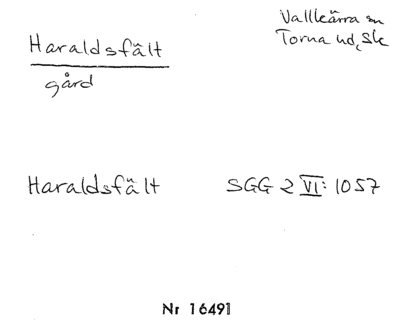 Haraldsfält
gård
Vallkärra sn
Torna hd, Sk
Haraldsfält SGG 2 VI: 1057
Nr 16491